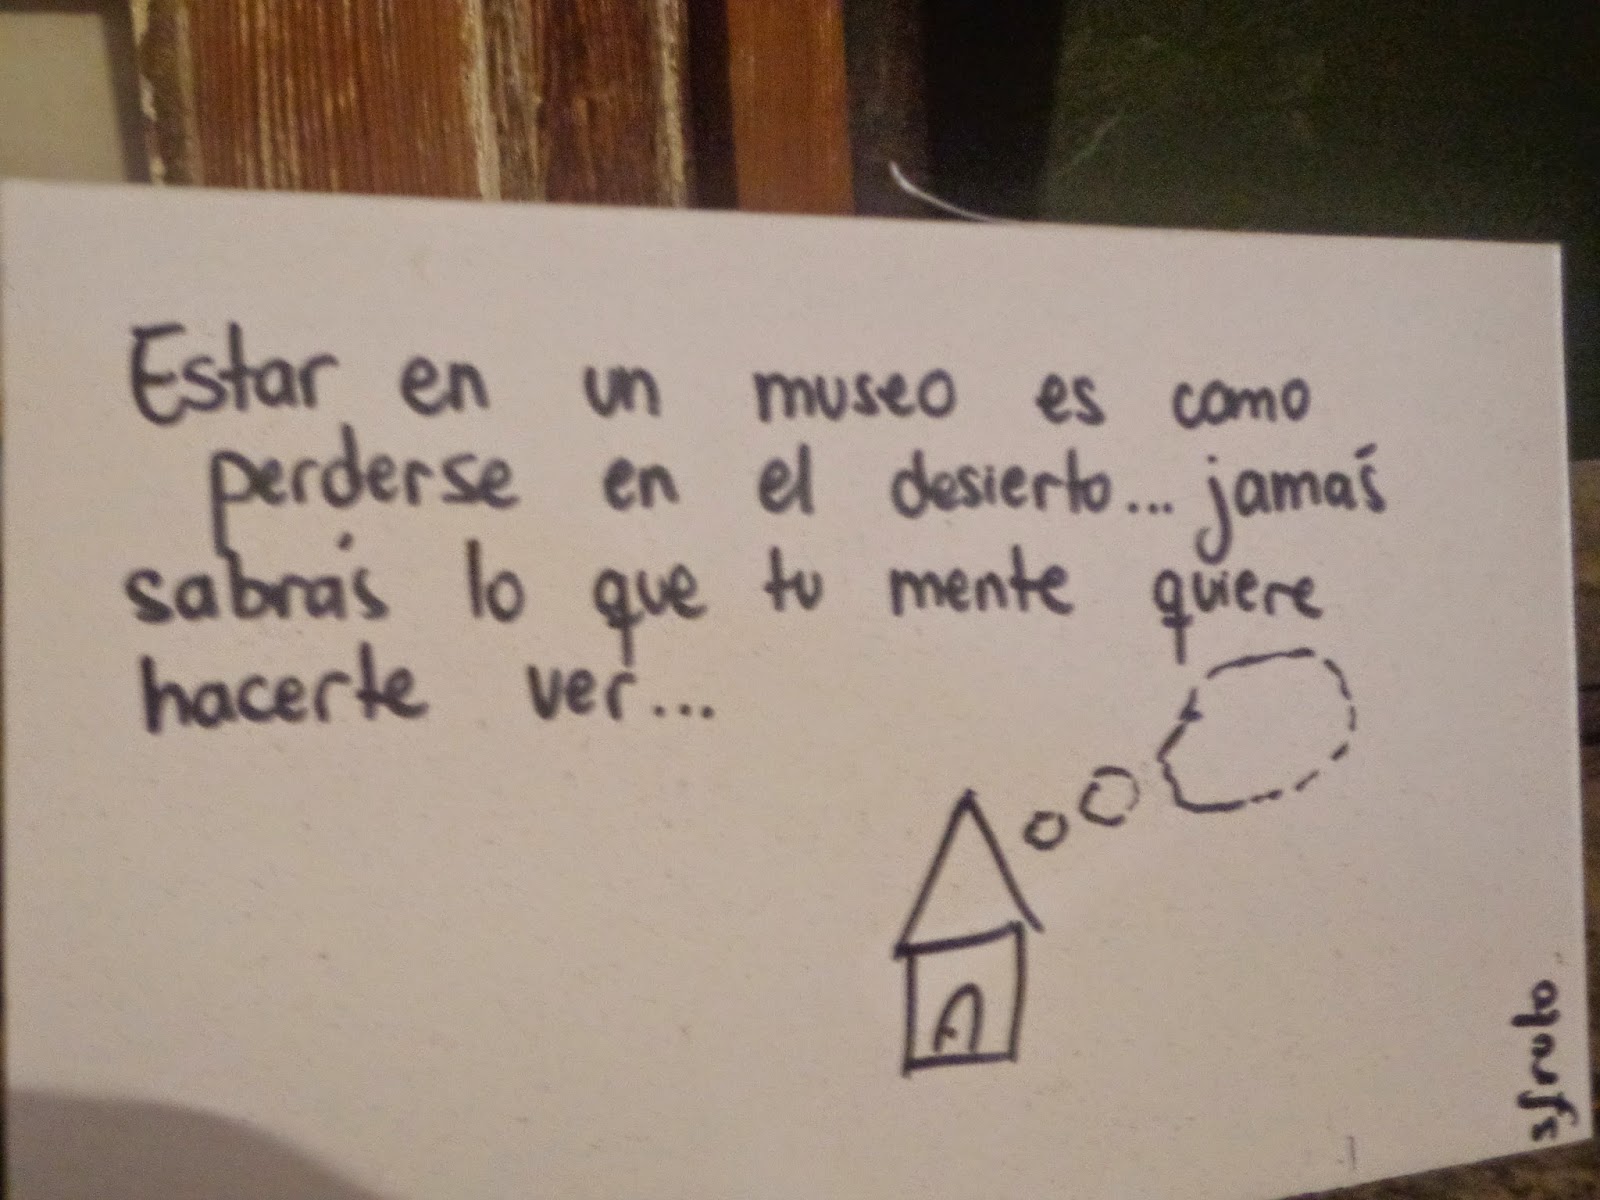 Estar en un museo es como
perderse en el desierto... jamás
sabrás lo que tu mente quiere
hacerte ver...
sfruto